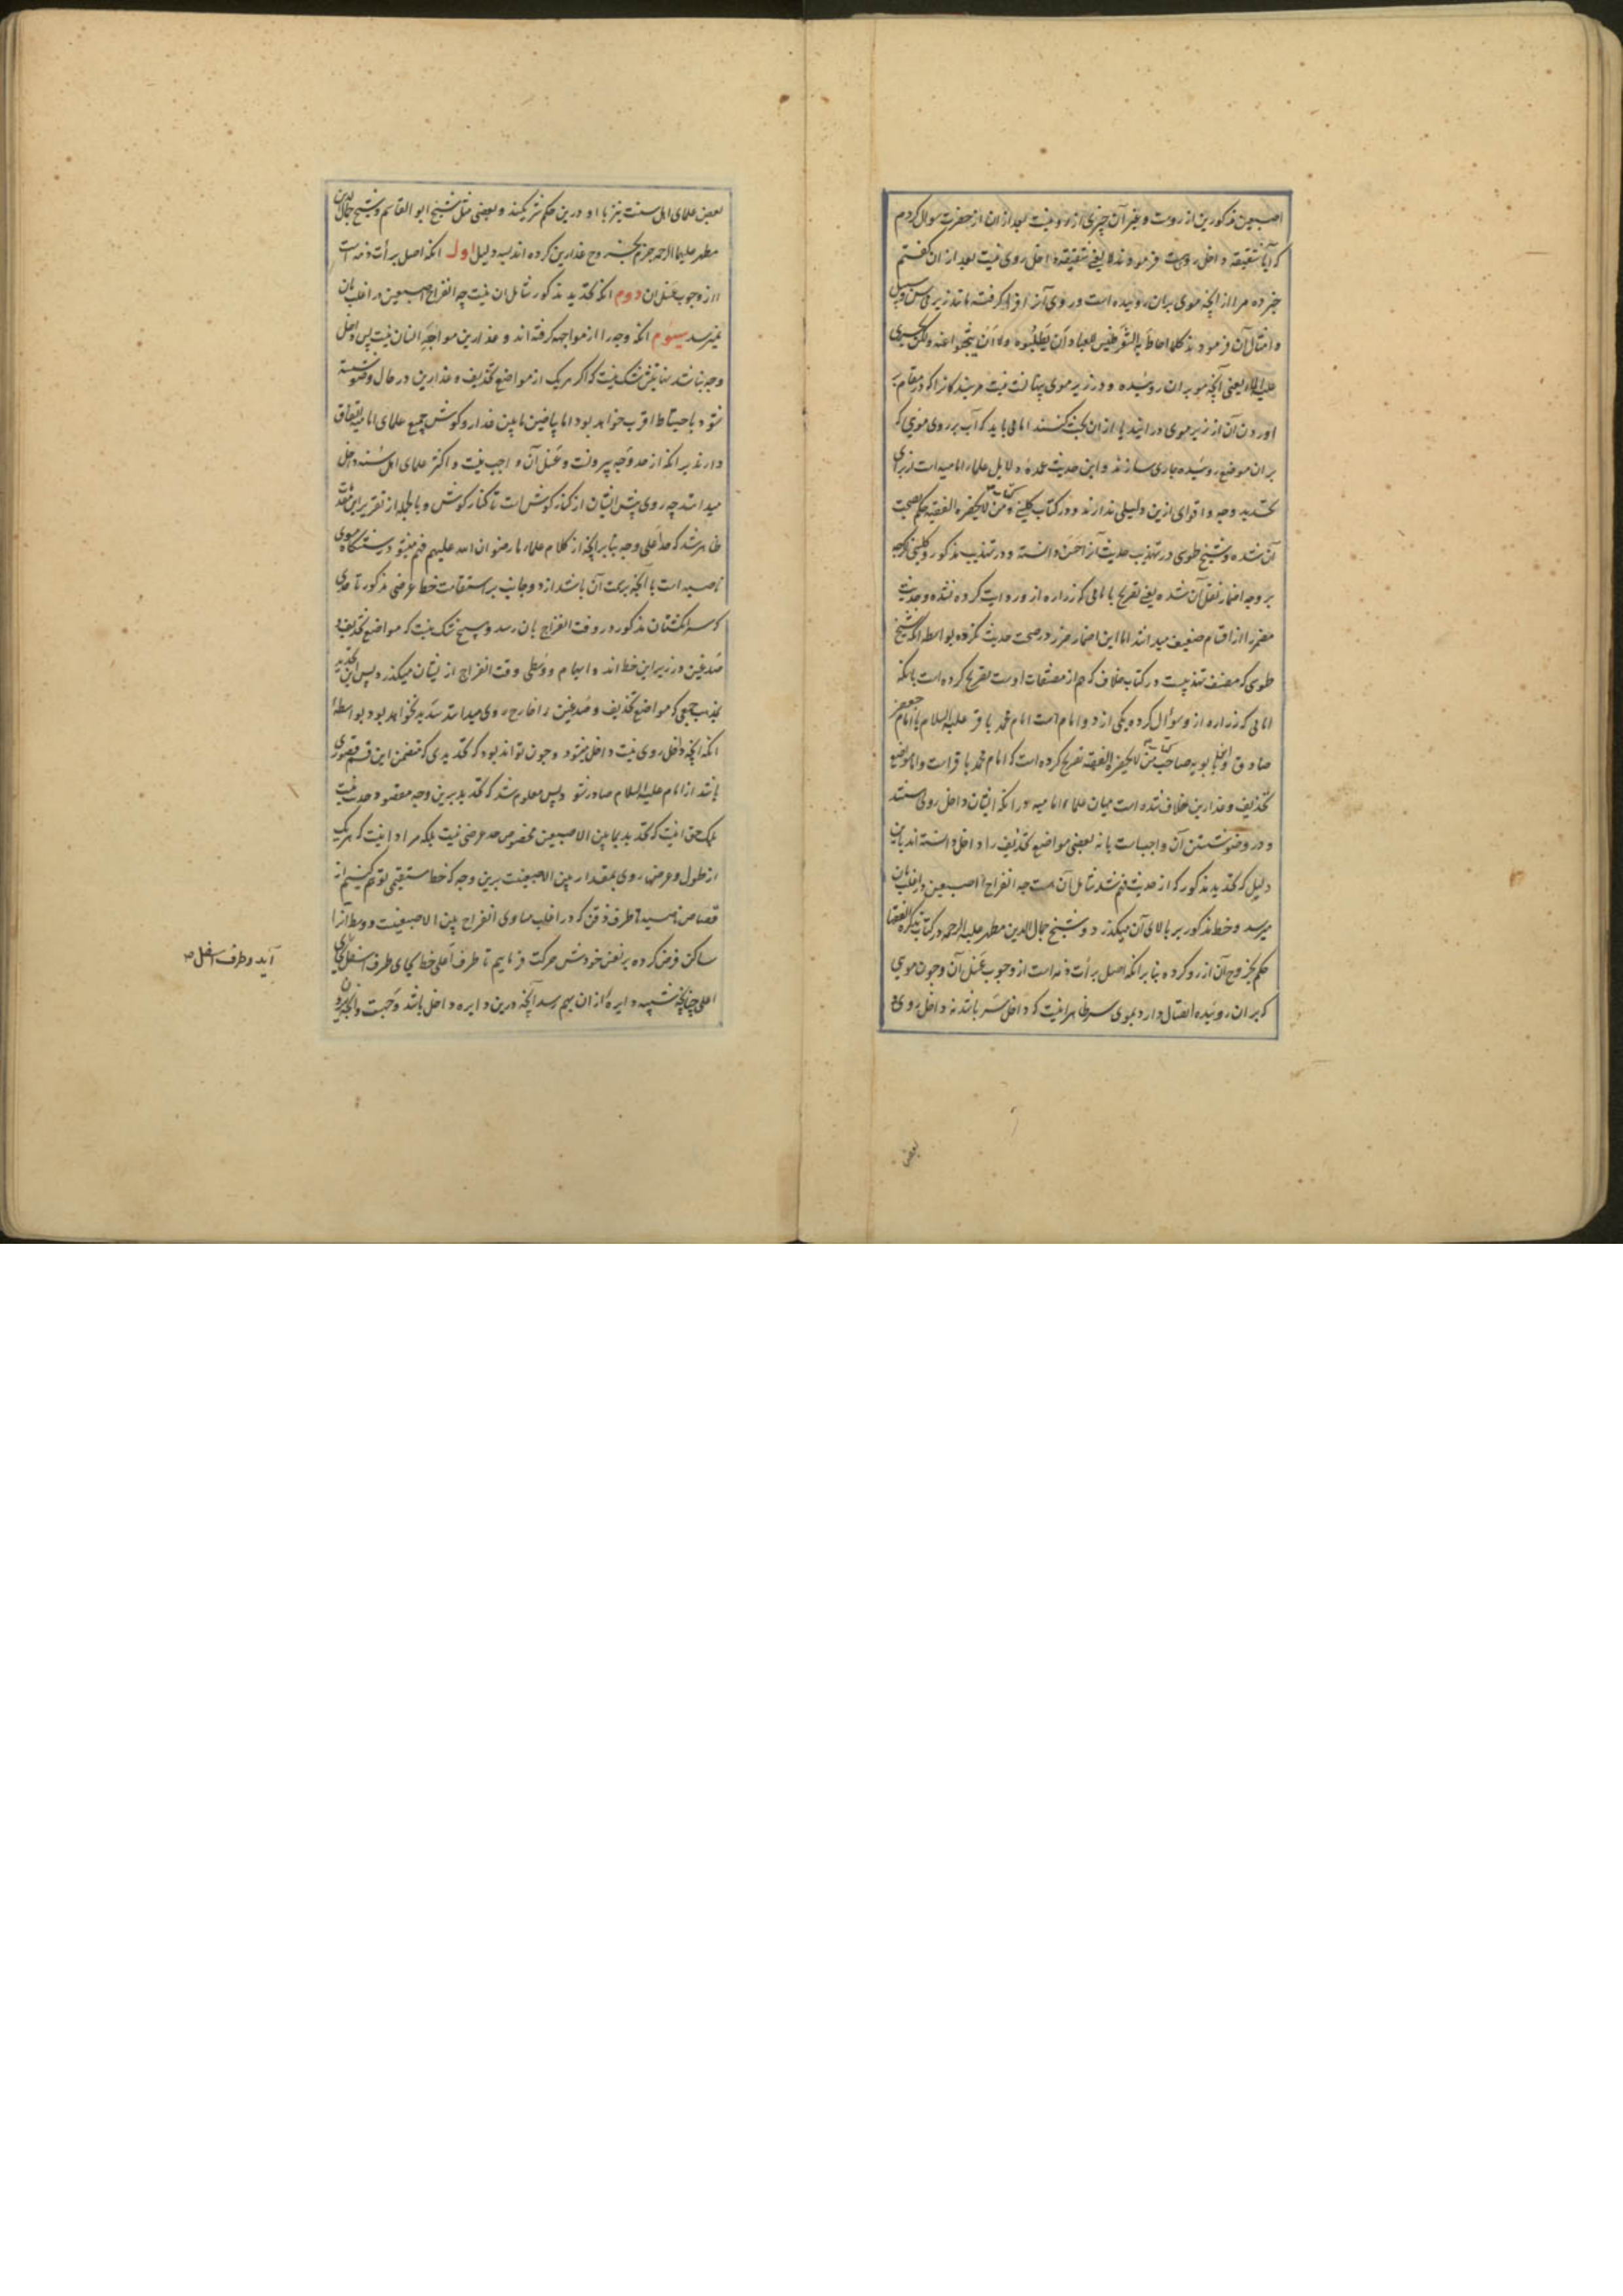 اصبعین مذکورین از رویست و غیر آن چیزی از رو نیست بعد از ان از حضرت سوال کردم
که آیا شقیقه داخل رویست فرمودند لا یعنی شقیقه داخل روی نیست بعد از ان گفتم
خبر ده مرا از آنچه موی بران روییده است و روی آنرا فرا گرفته مانند زیر
و امثال آن فرمودند کلما احاط به الشعر فلیس للعباد ان یطلبوه ولا ان یبحثوا عنه ولکن یجری
علیه الماء یعنی آنچه مو بران روییده و در زیر موی پنهانست نیست مر بندکانرا که در مقام
اوردن آن از زیر موی در ایند یا از ان بحث کنند اما می باید که آب بر روی مویی که
بران موضع روییده جاری سازند و این حدیث عمده دلایل علماء امامیه است از برای
تحدید وجه و اقوای ازین دلیلی ندارند و در کتاب کلینی و کتاب من لایحضره الفقیه حکم بصحت
آن شده و شیخ طوسی در تهذیب حدیث آنرا حسن دانسته و در تهذیب مذکور و کلینی اگرچه
بر وجه اضمار نقل آن شده یعنی تصریح بامامی که زراره از و روایت کرده نشده و حدیث
مضمر را از اقسام ضعیف میدانند اما این اضمار ضرر در صحت حدیث نکرده بواسطه آنکه شیخ
طوسی که مصنف تهذیبست در کتاب خلاف که هم از مصنفات اوست تصریح کرده است بآنکه
امامی که زراره از و سؤال کرده یکی از دو امام است امام محمد باقر علیه السلام یا امام جعفر
صادق و ابن بابویه صاحب کتاب من لایحضره الفقیه تصریح کرده است که امام محمد باقر است و اما مواضع
تحذیف و عذارین خلاف شده است میان علماء امامیه در انکه ایشان داخل روی هستند
و در وضو شستن آن واجب است یا نه بعضی مواضع تحذیف را داخل دانسته اند باین
دلیل که تحدید مذکور که از حدیث فهم شد شامل آن هست چه انفراج اصبعین در اغلب بان
میرسد و خط مذکور بر بالای آن میکذرد و شیخ جمال الدین مطهر علیه الرحمه در کتاب تذکرة الفقها
حکم بخروج آن از رو کرده بنا بر انکه اصل برأت ذمه است از وجوب غسل آن و چون مویی
که بران روییده اتصال دارد بموی سر ظاهر انیست که داخل سر باشد نه داخل روی
بعض
بعض علمای اهل سنت نیز با او درین حکم شریکند و بعضی مثل شیخ ابو القاسم و شیخ جمال الدین
مطهر علیهما الرحمه جزم بخروج عذارین کرده اند بسه دلیل اول انکه اصل برأت ذمه است
از وجوب غسل ان دوم انکه تحدید مذکور شامل ان نیست چه انفراج اصبعین در اغلب بان
نمیرسد سیوم انکه وجه را از مواجهه کرفته اند و عذارین مواجه انسان نیست پس داخل
وجه نباشند شک نیست که اکر هر یک از مواضع تحذیف و عذارین در حال وضو شسته
شود باحتیاط اقرب خواهد بود اما بیاض مابین عذار و کوش جمیع علمای امامیه اتفاق
دارند بر انکه از حد وجه بیرونست و غسل آن واجب نیست و اکثر علمای اهل سنه داخل
میدانند چه روی پیش ایشان از کنار کوش است تا کنار کوش و بالجمله از تقریر این
ظاهر شد که حد اعلی وجه بنا بر آنچه از کلام علماء ما رضوان الله علیهم فهم میشود رستنکاه موی
ناصیه است با آنچه بر سمت آن باشد از دو جانب بر استقامت خط عرضی مذکور تا حدی
که سر انکشتان مذکور در وقت انفراج بان رسد و هیچ شک نیست که مواضع تحذیف و
صدغین در زیر این خط اند و ابهام و وسطی وقت انفراج از ایشان میکذرد پس این تحدید
بمذهب جمعی که مواضع تحذیف و صدغین را خارج روی میدانند سدید نخواهد بود بواسطه
انکه آنچه داخل روی نیست داخل میشود و چون تواند بود که تحدیدی که متضمن این قسم قصوری
باشد از امام علیه السلام صادر شود پس معلوم شد که تحدید برین وجه مقصود حدیث نیست
بلک حق انیست که تحدید بما بین الاصبعین مخصوص حد عرضی نیست بلکه مراد انیست که هر یک
از طول و عرض روی بمقدار بین الاصبعینست برین وجه که خط مستقیمی توهم کنیم از
قصاص ناصیه تا طرف ذقن که در اغلب مساوی انفراج بین الاصبعینست و وسط آنرا
ساکن فرض کرده بر نفس خودش حرکت فرماییم تا طرف اعلی خط بجای طرف اسفل
آید و طرف اسفل
اعلی چنانکه شبیه دایره از ان بهم رسد آنچه درین دایره داخل باشد وجهست و آنچه بیرون